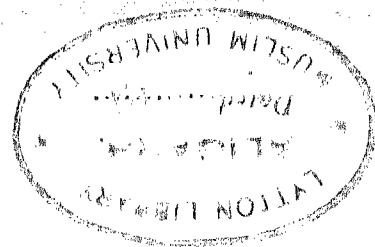 LYTTON LIBRARY
ALIGARH.
Dated............
MUSLIM UNIVERSITY